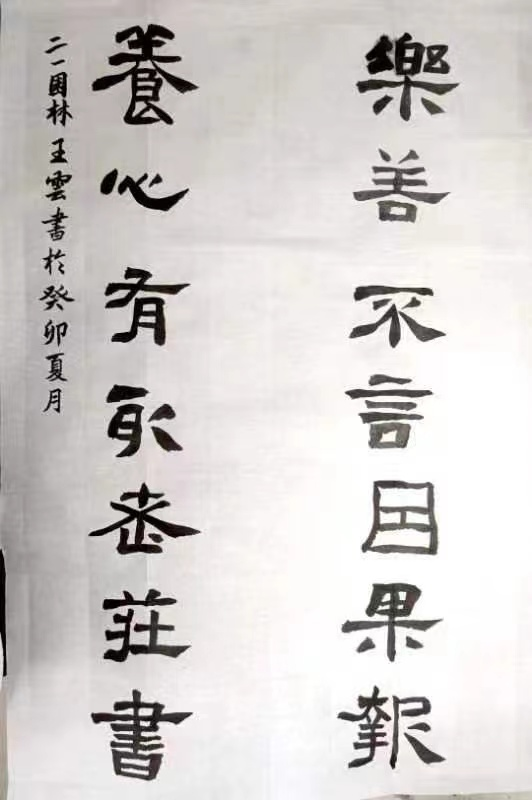 樂善不言因果報
養心有取老莊書
二一園林王雲書於癸卯夏月